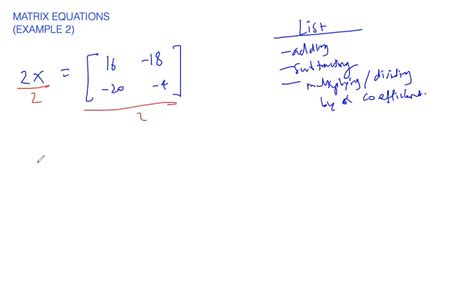 MATRIX EQUATIONS
(EXAMPLE 2)
2x = [ 16 -18
-20 -4 ]
2 2
List
- adding
- subtracting
- multiplying / dividing
by a coefficient.